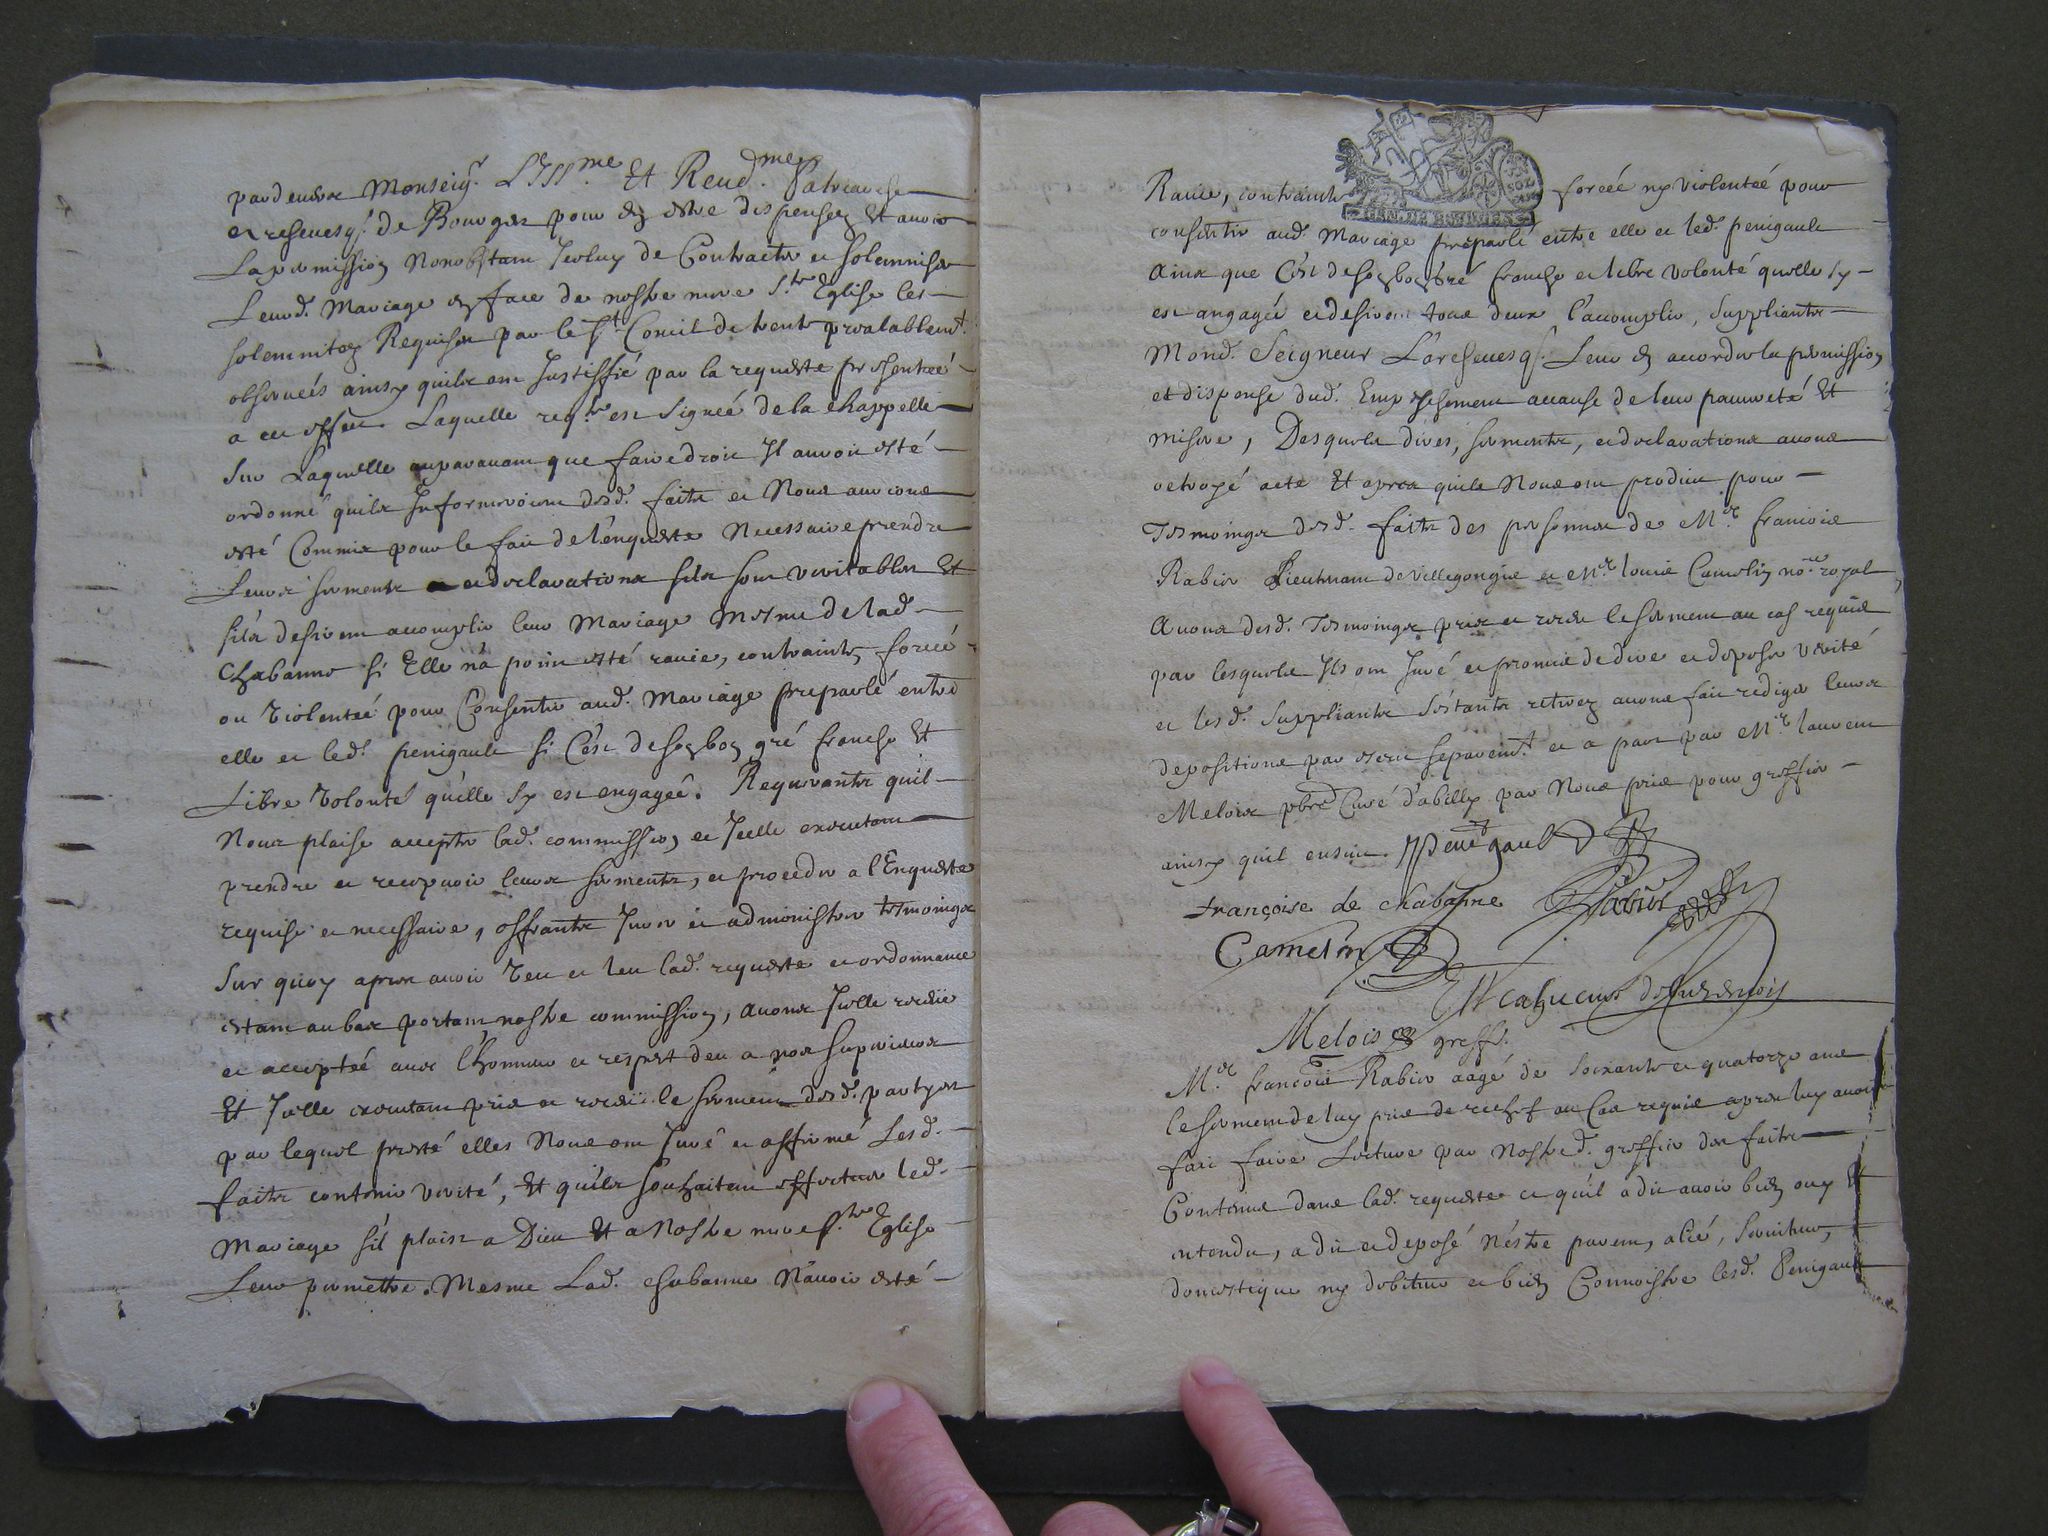 pardevers Monseigr. L'Illme. Et Revdme. Patriarche
archevesq. de Bourges pour En estre dispensez Et avoir
La permission Nonobstant Iceluy de Contracter et solemniser
Leurd. Mariage En face de nostre mere Ste Eglise les
solemnitez Requises par le St. Concil de trente prealablemt.
observeés ainsy quils ont Justiffié par la requeste presenteé
a cet effect Laquelle reqte est signeé de la chappelle
sur Laquelle auparavant que faire droit Il auroit esté
ordonné quils Informeroient desd. faits et Nous aurions
esté Commis pour le fait de l'enqueste Necessaire prendre
Leurs serments et declarations sils sont veritables Et
sils desirent acomplir leur Mariage Mesme de lad.
Chabanne si Elle n'a point esté ravie, contrainte, forceé
ou violenteé pour Consentir aud. Mariage preparlé entre
elle et led. penigault si C'est de son bon gré franche Et
Libre volonté qu'elle sy est engageé. Requerants quil
Nous plaise accepter lad. commission et Icelle executant
prendre et recepvoir leurs serments, et proceder a l'Enqueste
requise et necessaire, offrants Jurer et administrer tesmoings
Sur quoy apres avoir veu et leu lad. requeste et ordonnance
estant au bas portant nostre commission, avons Icelle receüe
et accepteé avec l'honneur et respect deu a nos superieurs
Et Icelle executant pris et receü le serment desd. partyes
par lequel presté elles Nous ont Juré et affirmé Lesd.
faits contenir verité, Et qu'ils souhaitent effectuer led.
Mariage s'il plaist a Dieu Et a Nostre mere Ste Eglise
Leur permettre. Mesme Lad. chabanne N'avoir esté
GEN. DE BOURGES
SOL
Ravie, contrainte forceé ny violenteé pour
consentir aud. Mariage preparlé entre elle et led. penigault
Ains que C'est de son bon gré franche et libre volonté quelle sy
est engageé et desirent tous deux l'accomplir, Suppliants
Mond. Seigneur L'archevesq. Leur En accorder la permission
et dispense dud. Empeschement acause de leur pauvreté Et
misere, Desquels dires, serments, et declarations avons
octroyé acte Et apres quils Nous ont produit pour
Tesmoings desd. faits des personnes de Mre. francois
Rabier Lieutenant de villegongis et Mre. louis Camelin nore. royal
Avons desd. Tesmoings pris et receu le serment au cas requis
par lesquels Ils ont Juré et promis de dire et deposer verité
et lesd. Suppliants s'estants retirez avons fait rediger leurs
depositions par escrit separemt. et a part par Mre. laurent
Melois pbre Curé d'abilly par Nous pris pour greffier
ainsy quil ensuit. Penigault
françoise de chabanne Rabier
Camelin
Melois greff.
Mre. francois Rabier aagé de soixante et quatorze ans
le serment de luy pris derechef au Cas requis apres luy avoir
fait faire Lecture par Nostred. greffier des faits
Contenus dans lad. requeste et qu'il a dit avoir bien ouy Et
entendu, a dit et deposé N'estre parent, alié, serviteur,
domestique ny debiteur et bien Connoistre lesd. Penigault